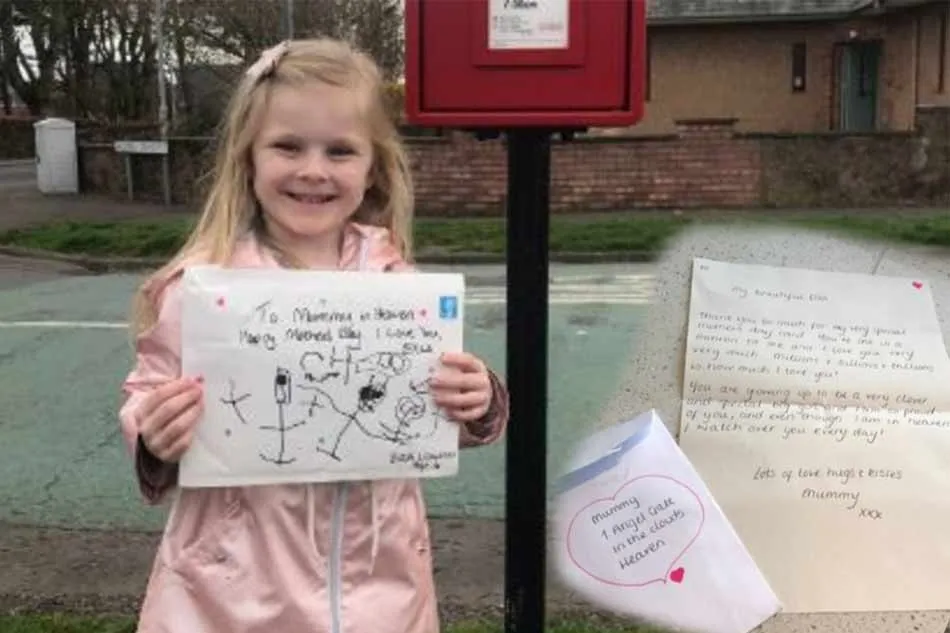 To Mummy in Heaven
Happy Mothers Day I love you,
Ella
My Beautiful Ella
Thank you so much for my very special
mother's day card. You're one in a
million to me and I love you very
very much. Millions & billions & trillions
is how much I love you!
You are growing up to be a very clever
and special big girl and I am so proud
of you, and even though I am in heaven
I watch over you every day!
Lots of love hugs & kisses
Mummy
xxx
Mummy
1 Angel Gate
In the clouds
Heaven